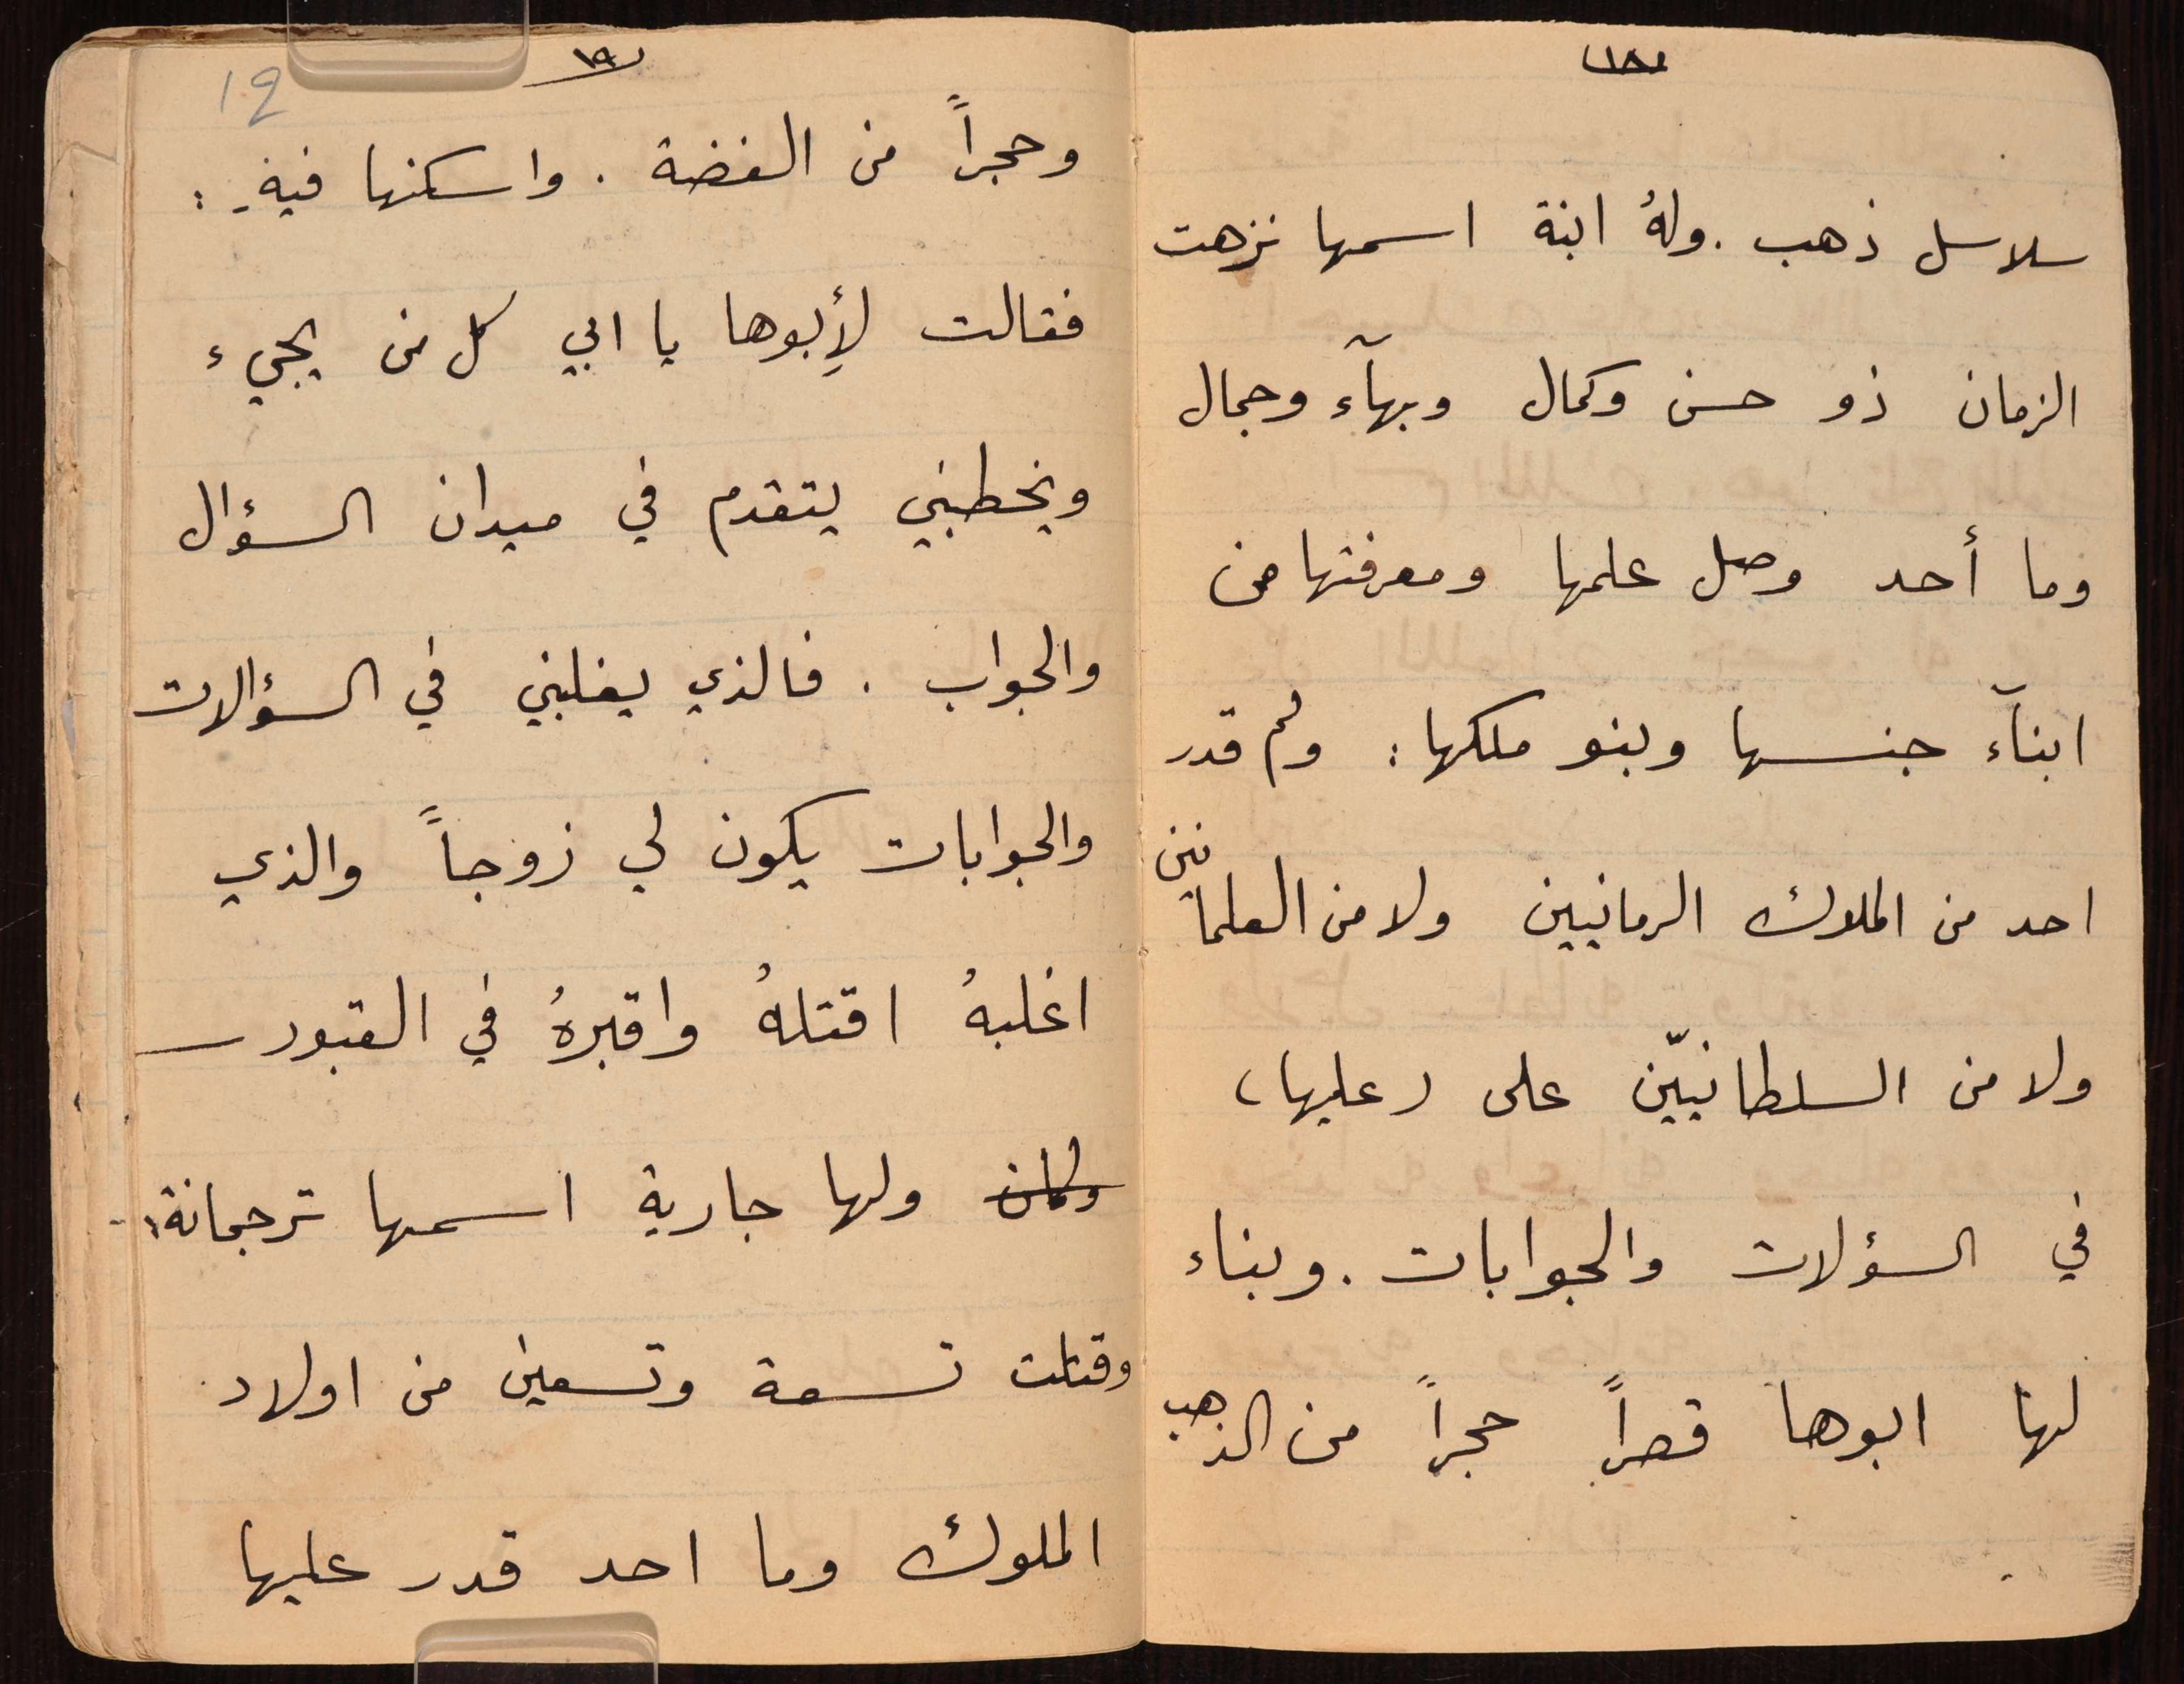 ١٨
سلاسل ذهب . ولهُ ابنة اسمها نزهت
الزمان ذو حسن وكمال وبهآء وجمال
وما أحد وصل علمها ومعرفتها من
ابنآء جنسها وبنو ملكها : ولم قدر
احد من الملوك الرمانيين ولا من العلمانين
ولا من السلطانيّن على (عليها)
في السؤلات والجوابات . وبناء
لها ابوها قصراً حجراً من الذهب
١٩
19
وحجراً من الفضة . واسكنها فيهِ :
فقالت لأبوها يا ابي كل من يجيء
ويخطبني يتقدم في ميدان السؤال
والجواب . فالذي يغلبني في السؤالات
والجوابات يكون لي زوجاً والذي
اغلبهُ اقتلهُ واقبرهُ في القبور
وكان ولها جارية اسمها ترجمانة .
وقتلت تسعة وتسعين من اولاد
الملوك وما احد قدر عليها